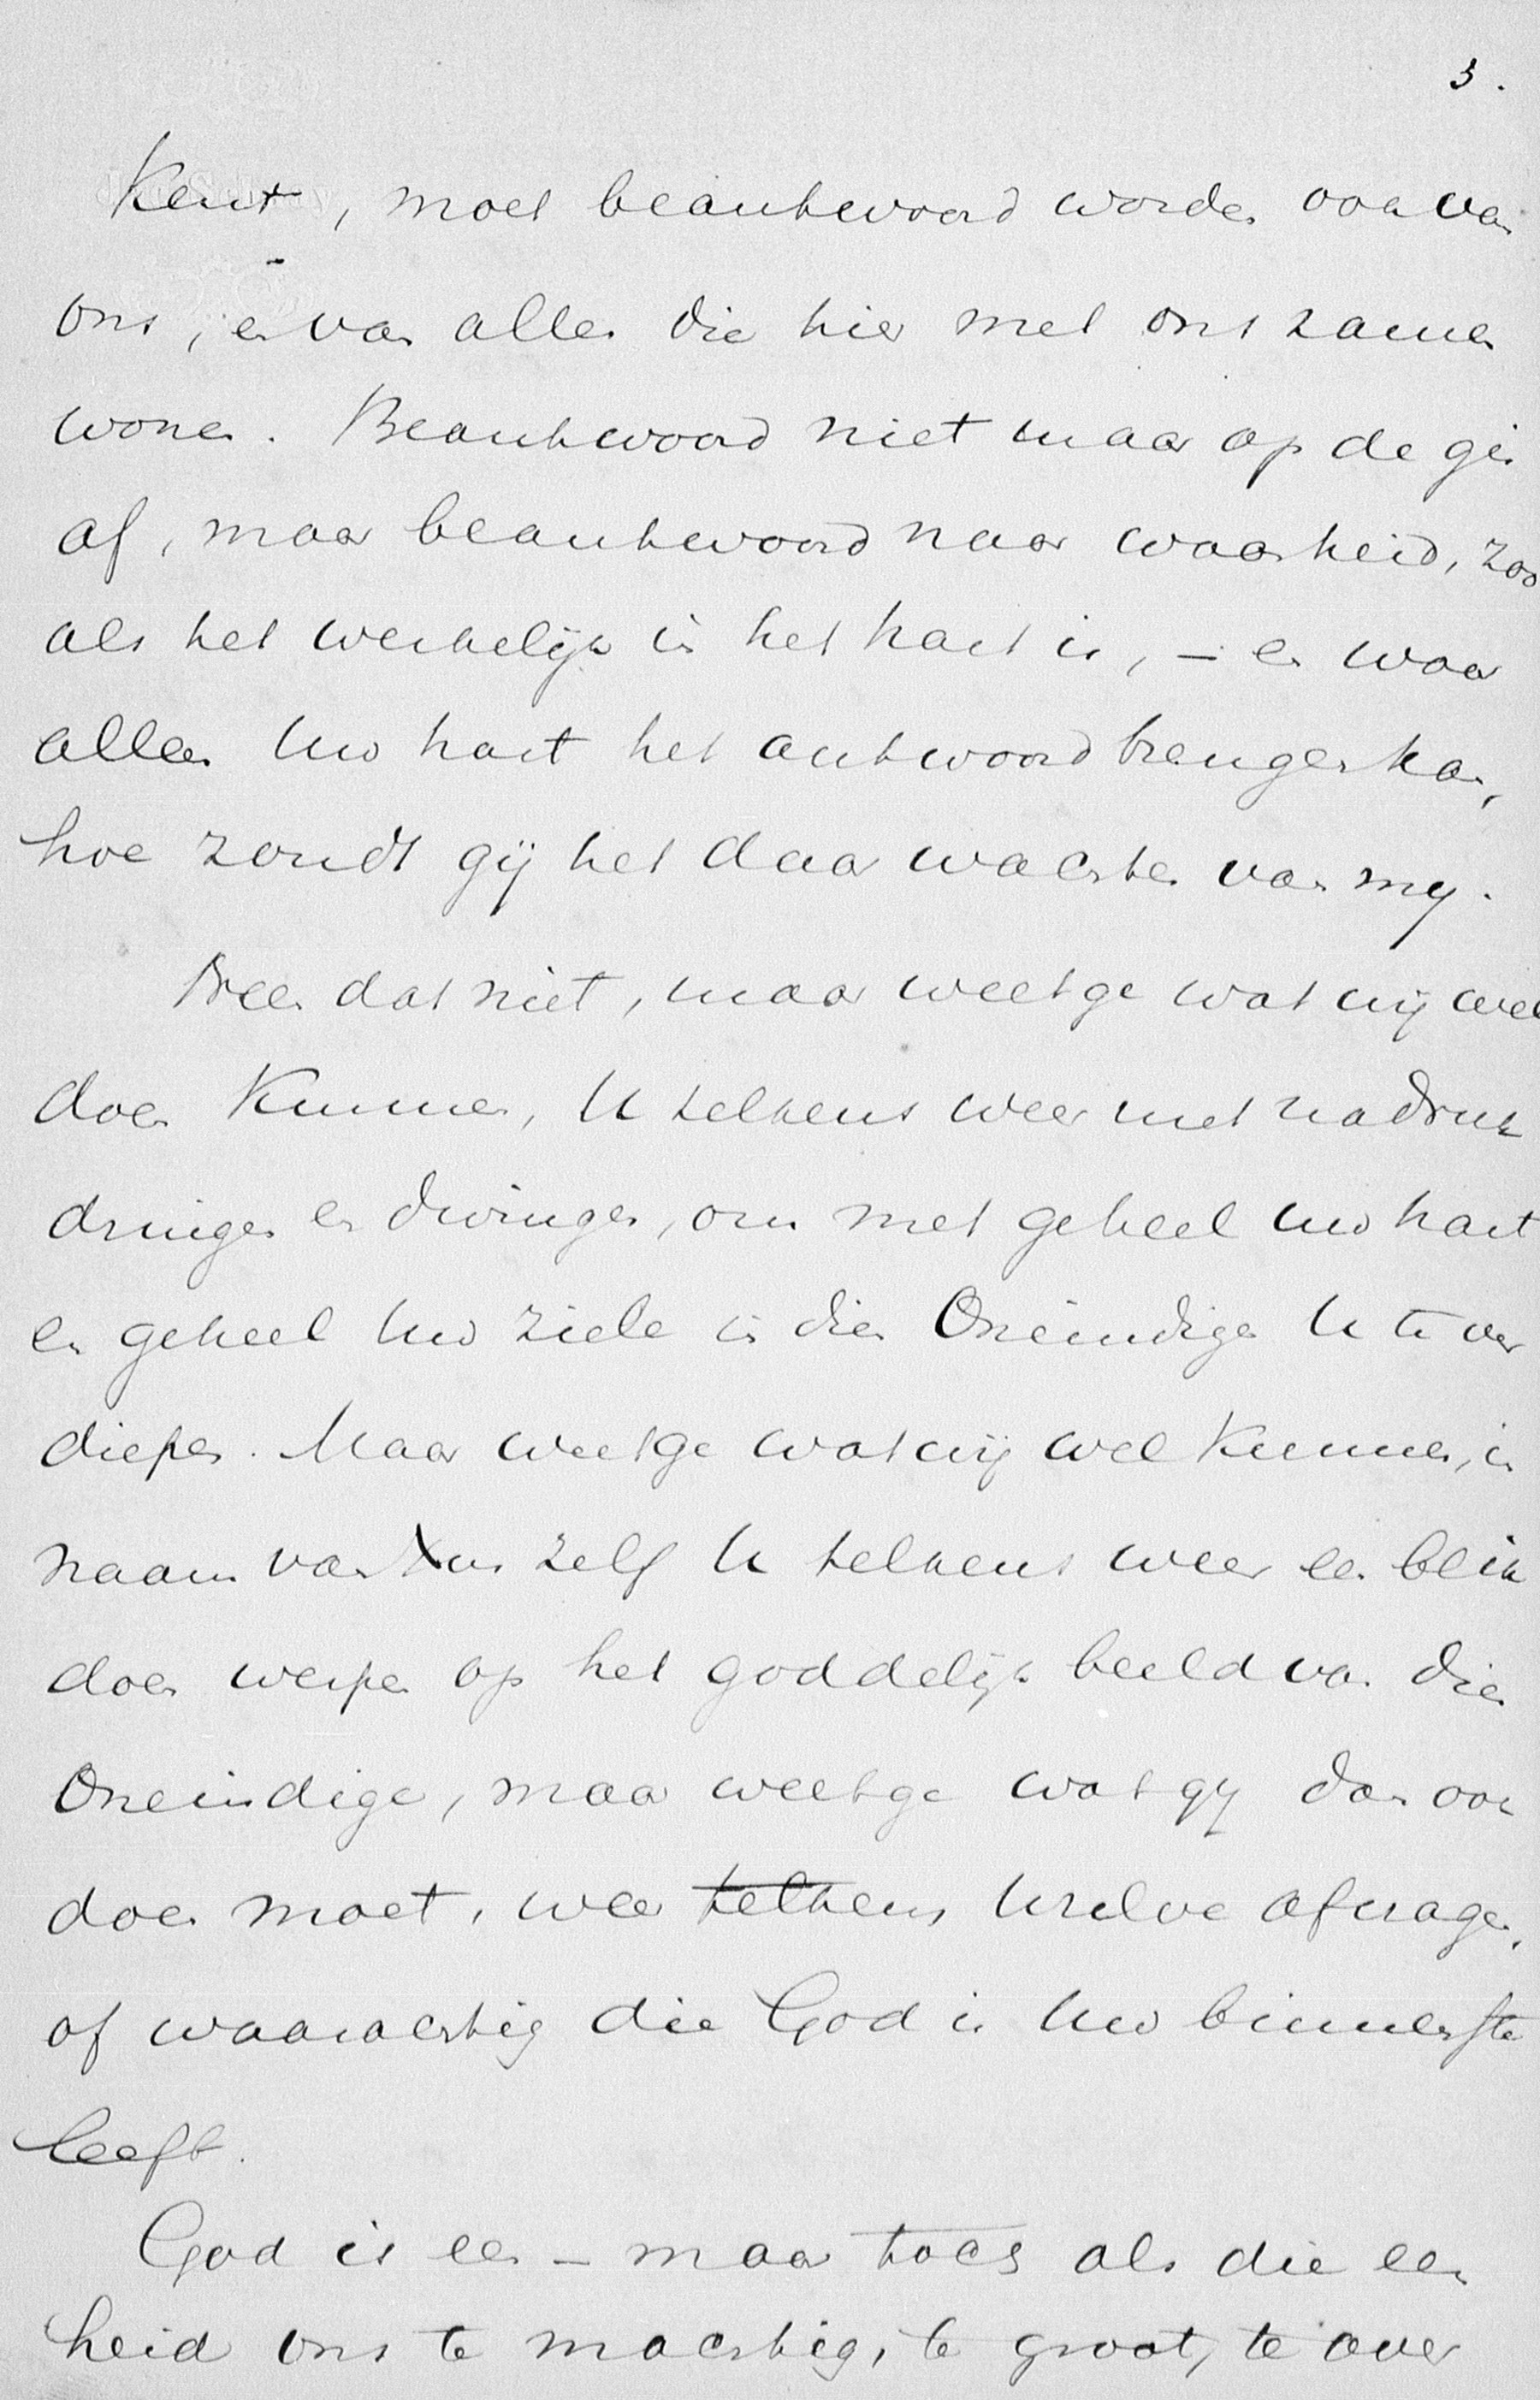 3.
Kent, moet beantwoord worden ook van
ons, en van allen die hier met ons zamen
wonen. Beantwoord niet maar op de gis
af, maar beantwoord naar waarheid, zoo
als het werkelijk in het hart is, – en waar
alleen Uw hart het antwoord brengen kan,
hoe zoudt gij het daar wachten van my.
Neen dat niet, maar weetge wat wij wel
doen Kunnen, U telkens weer met nadruk
dringen en dwingen, om met geheel Uw hart
en geheel Uw ziele in dien Oneindige U te ver
diepen. Maar weetge wat wij wel Kunnen, in
naam van Xus zelf U telkens weer een blik
doen werpen op het goddelijk beeld van dien
Oneindige, maar weetge wat gy dan ook
doen moet, weer telkens Uzelve afvragen,
of waarachtig die God in Uw binnenste
leeft.
God is een – maar toch als die een
heid ons te machtig, te groot, te over